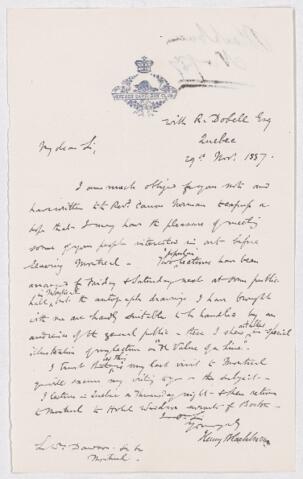 With R. Dobell Esq
Quebec
29th Novr. 1887.
My dear Sir,
I am much obliged for your note and
have written to the Revd. Canon Norman to express a
hope that I may have the pleasure of meeting
some of your people interested in art before
leaving Montreal – Two popular lectures have been
arranged for Friday & Saturday next at some public
hall, but the autograph drawings I have brought
with me are hardly suitable to be handled by an
audience of the general public – these I show at
illustration of my lecture on "The Value of a Line".
I trust as this is my last visit to Montreal
you will excuse my – the subject –
I lecture in Quebec on Thursday night – & then return
to Montreal to Hotel Windsor en route for Boston –
Yours
Henry Blackburn
Sir Wm Dawson
Montreal